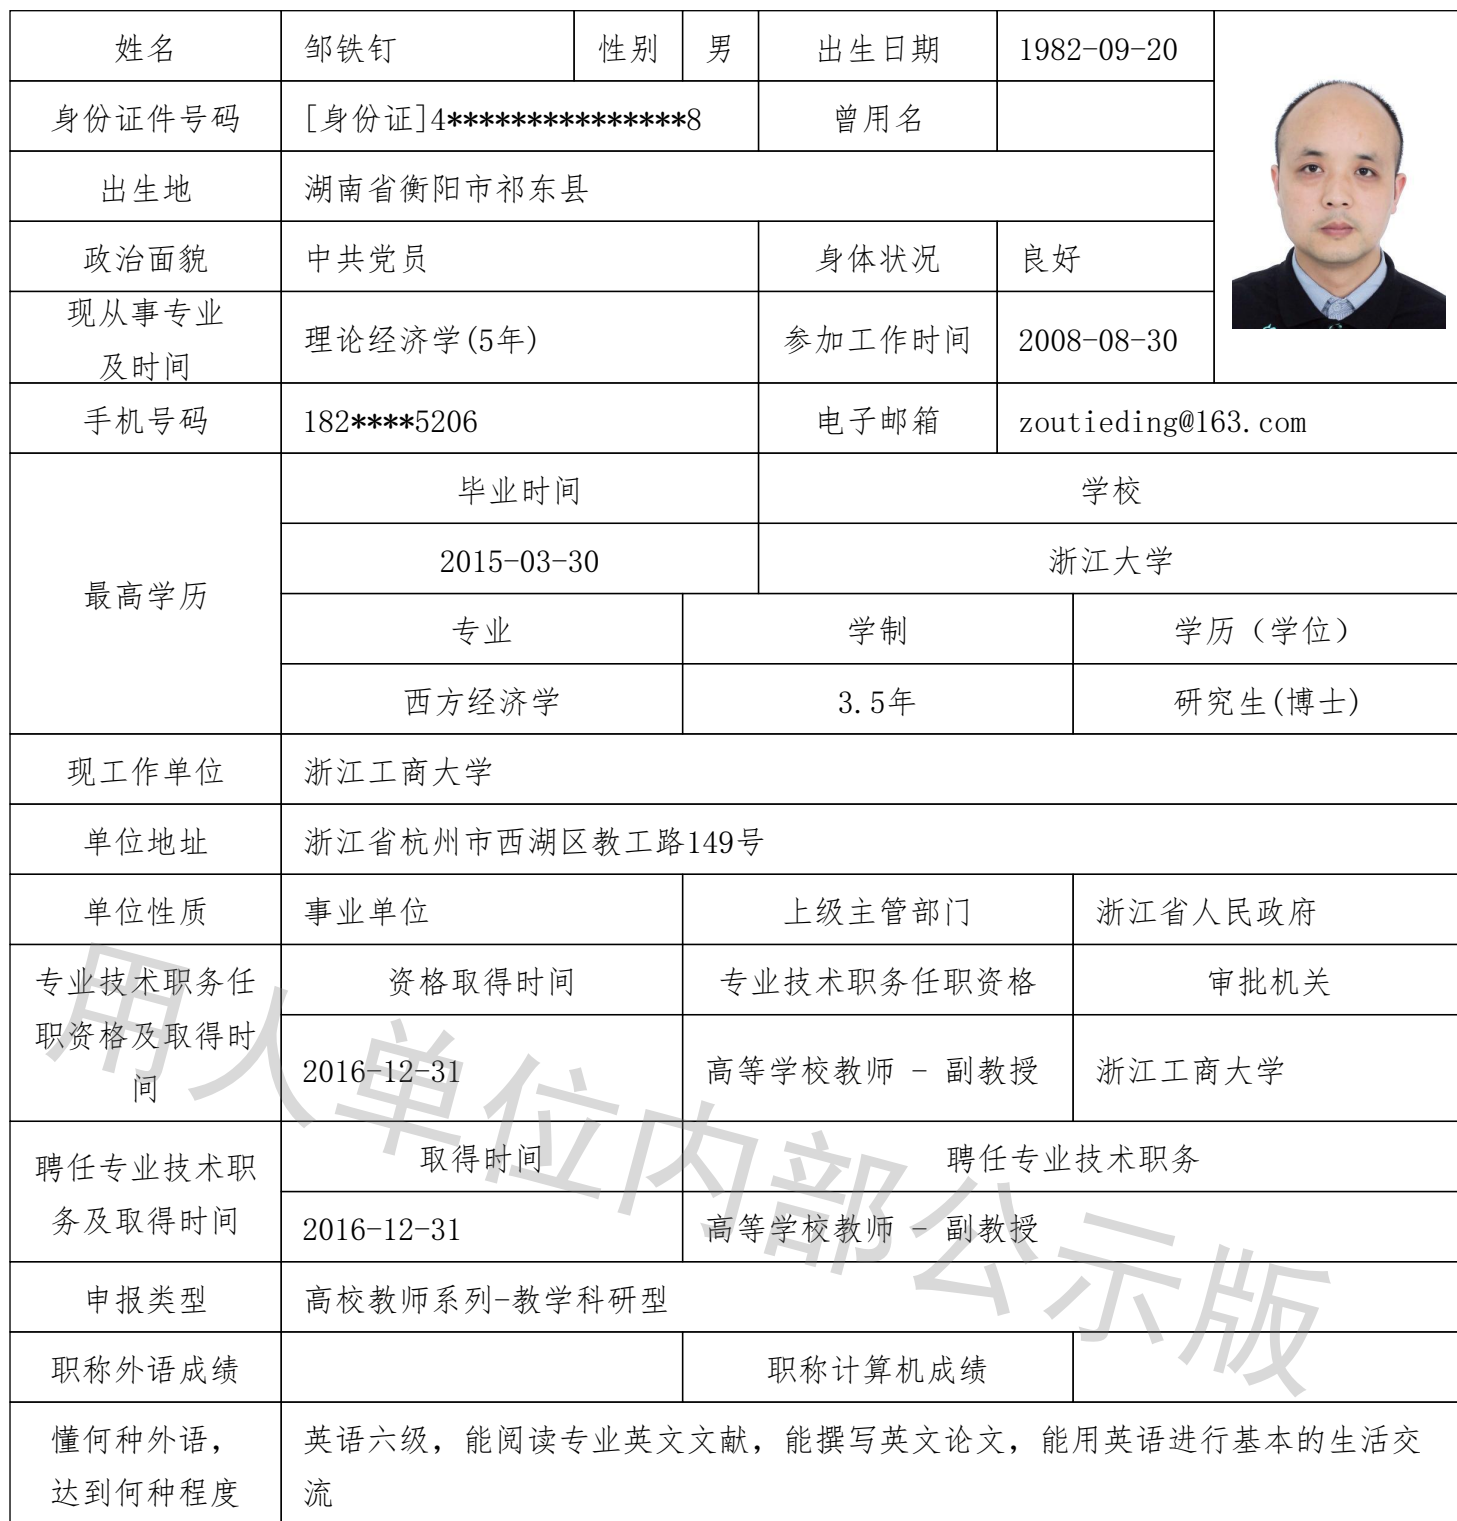 姓名 邹铁钉 性别 男 出生日期 1982-09-20
身份证件号码 [身份证]4***************8 曾用名
出生地 湖南省衡阳市祁东县
政治面貌 中共党员 身体状况 良好
现从事专业
及时间
理论经济学(5年) 参加工作时间 2008-08-30
手机号码 182****5206 电子邮箱 zoutieding@163.com
最高学历
毕业时间 学校
2015-03-30 浙江大学
专业 学制 学历（学位）
西方经济学 3.5年 研究生(博士)
现工作单位 浙江工商大学
单位地址 浙江省杭州市西湖区教工路149号
单位性质 事业单位 上级主管部门 浙江省人民政府
专业技术职务任
职资格及取得时
间
资格取得时间 专业技术职务任职资格 审批机关
2016-12-31 高等学校教师 - 副教授 浙江工商大学
聘任专业技术职
务及取得时间
取得时间 聘任专业技术职务
2016-12-31 高等学校教师 - 副教授
申报类型 高校教师系列-教学科研型
职称外语成绩 职称计算机成绩
懂何种外语，
达到何种程度
英语六级，能阅读专业英文文献，能撰写英文论文，能用英语进行基本的生活交
流
用人单位内部公示版